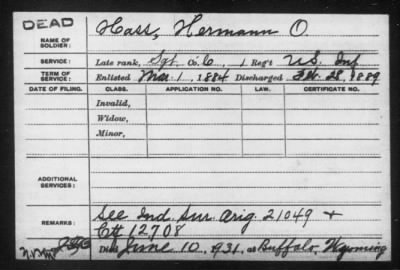 DEAD
NAME OF SOLDIER: Hass, Hermann O.
SERVICE: Late rank, Sgt Co. C, 1 Reg't U.S. Inf
TERM OF SERVICE: Enlisted Mar 1, 1884 Discharged Feb. 28, 1889
DATE OF FILING. CLASS. APPLICATION NO. LAW. CERTIFICATE NO.
Invalid,
Widow,
Minor,
ADDITIONAL SERVICES:
REMARKS: See Ind. Sur. Orig. 21049 +
Ctf 12708
Died June 10, 1931, at Buffalo, Wyoming